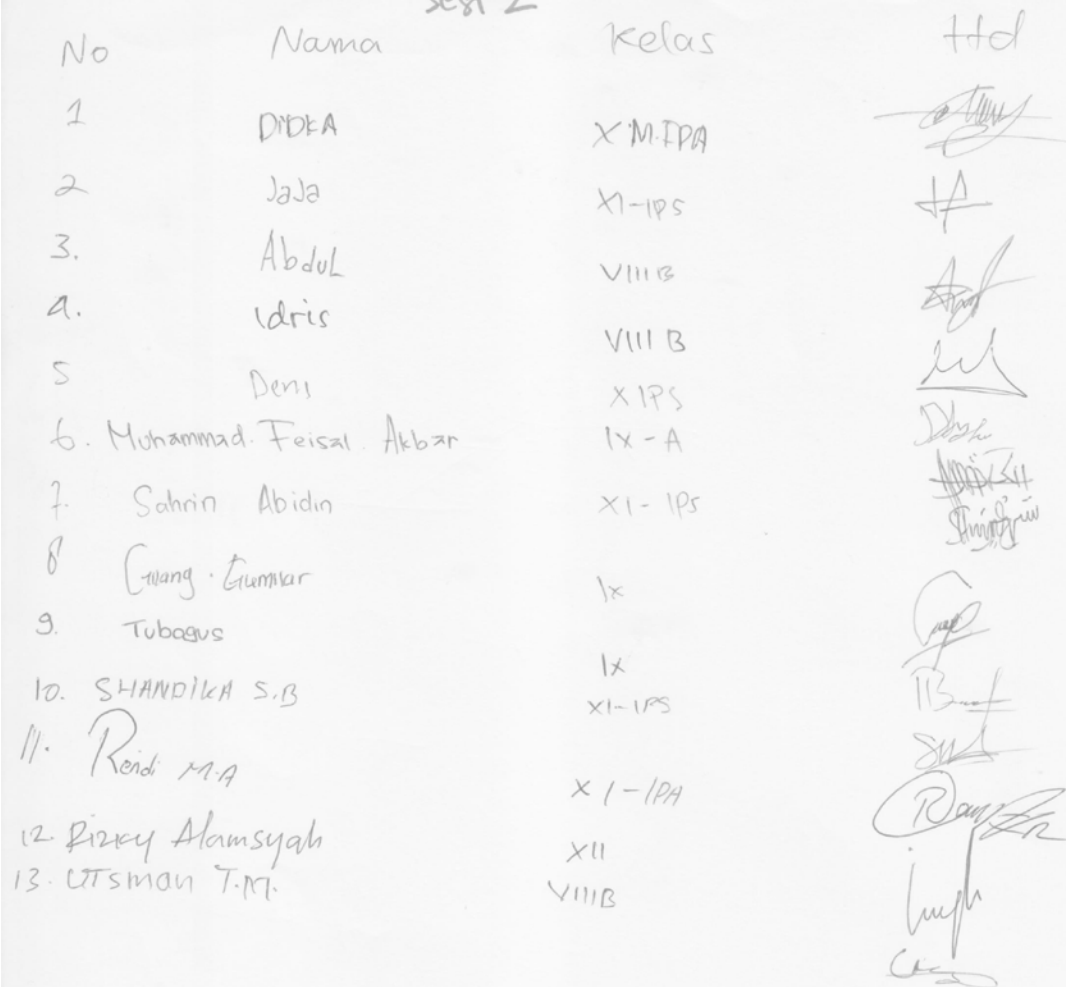 Sesi 2
No Nama Kelas ttd
1 DiDKA X M.IPA
2 JaJa XI-IPS
3. Abdul VIII B
4. Idris VIII B
5 Deni X IPS
6. Muhammad. Feisal. Akbar IX - A
7. Sahrin Abidin XI - IPS
8 Gilang. Gumilar IX
9. Tubagus IX
10. SHANDIKA S.B XI-IPS
11. Rendi M.A XI-IPA
12. Rizky Alamsyah XII
13. UTSMAN T.M. VIIIB